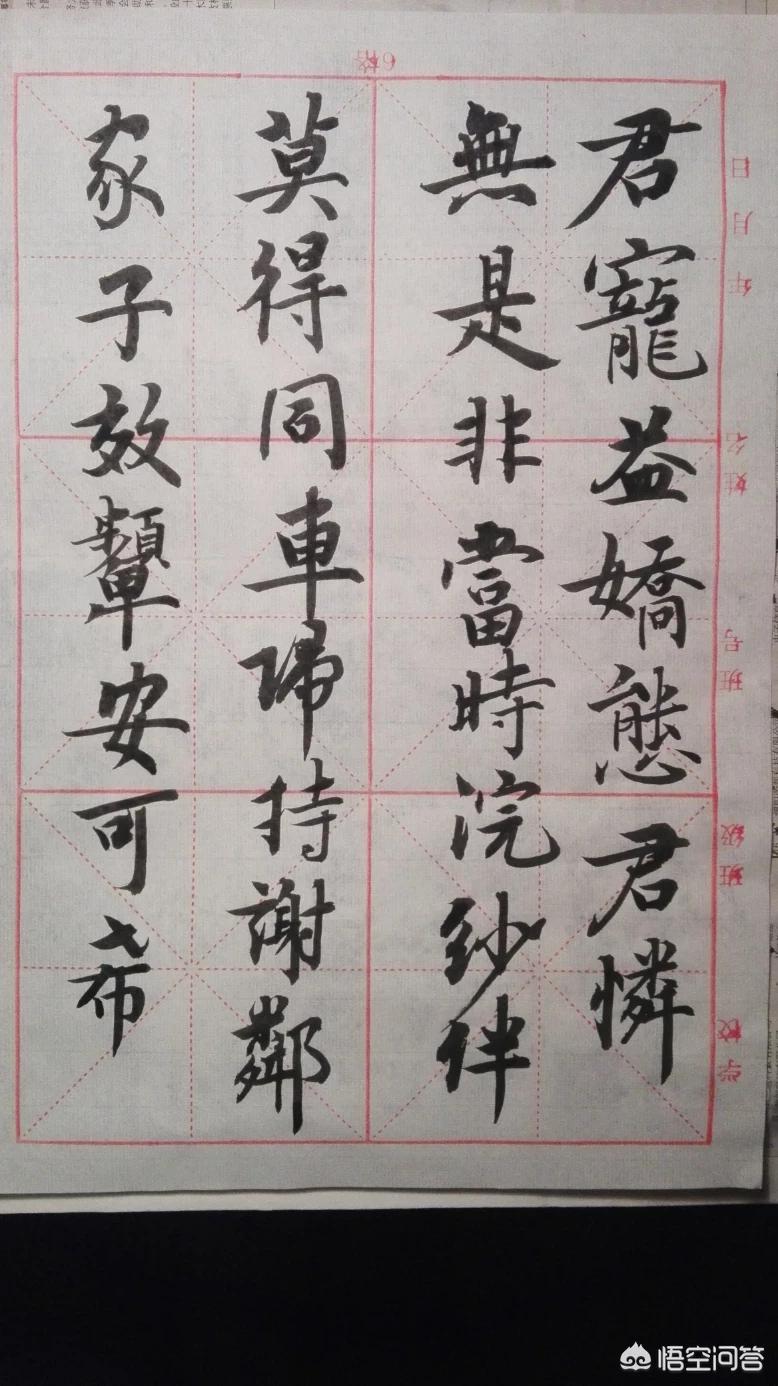 君寵益嬌態君憐
無是非當時浣紗伴
莫得同車歸持謝鄰
家子效顰安可希
6格
日
月
年
姓名
班号
班級
学校
悟空问答